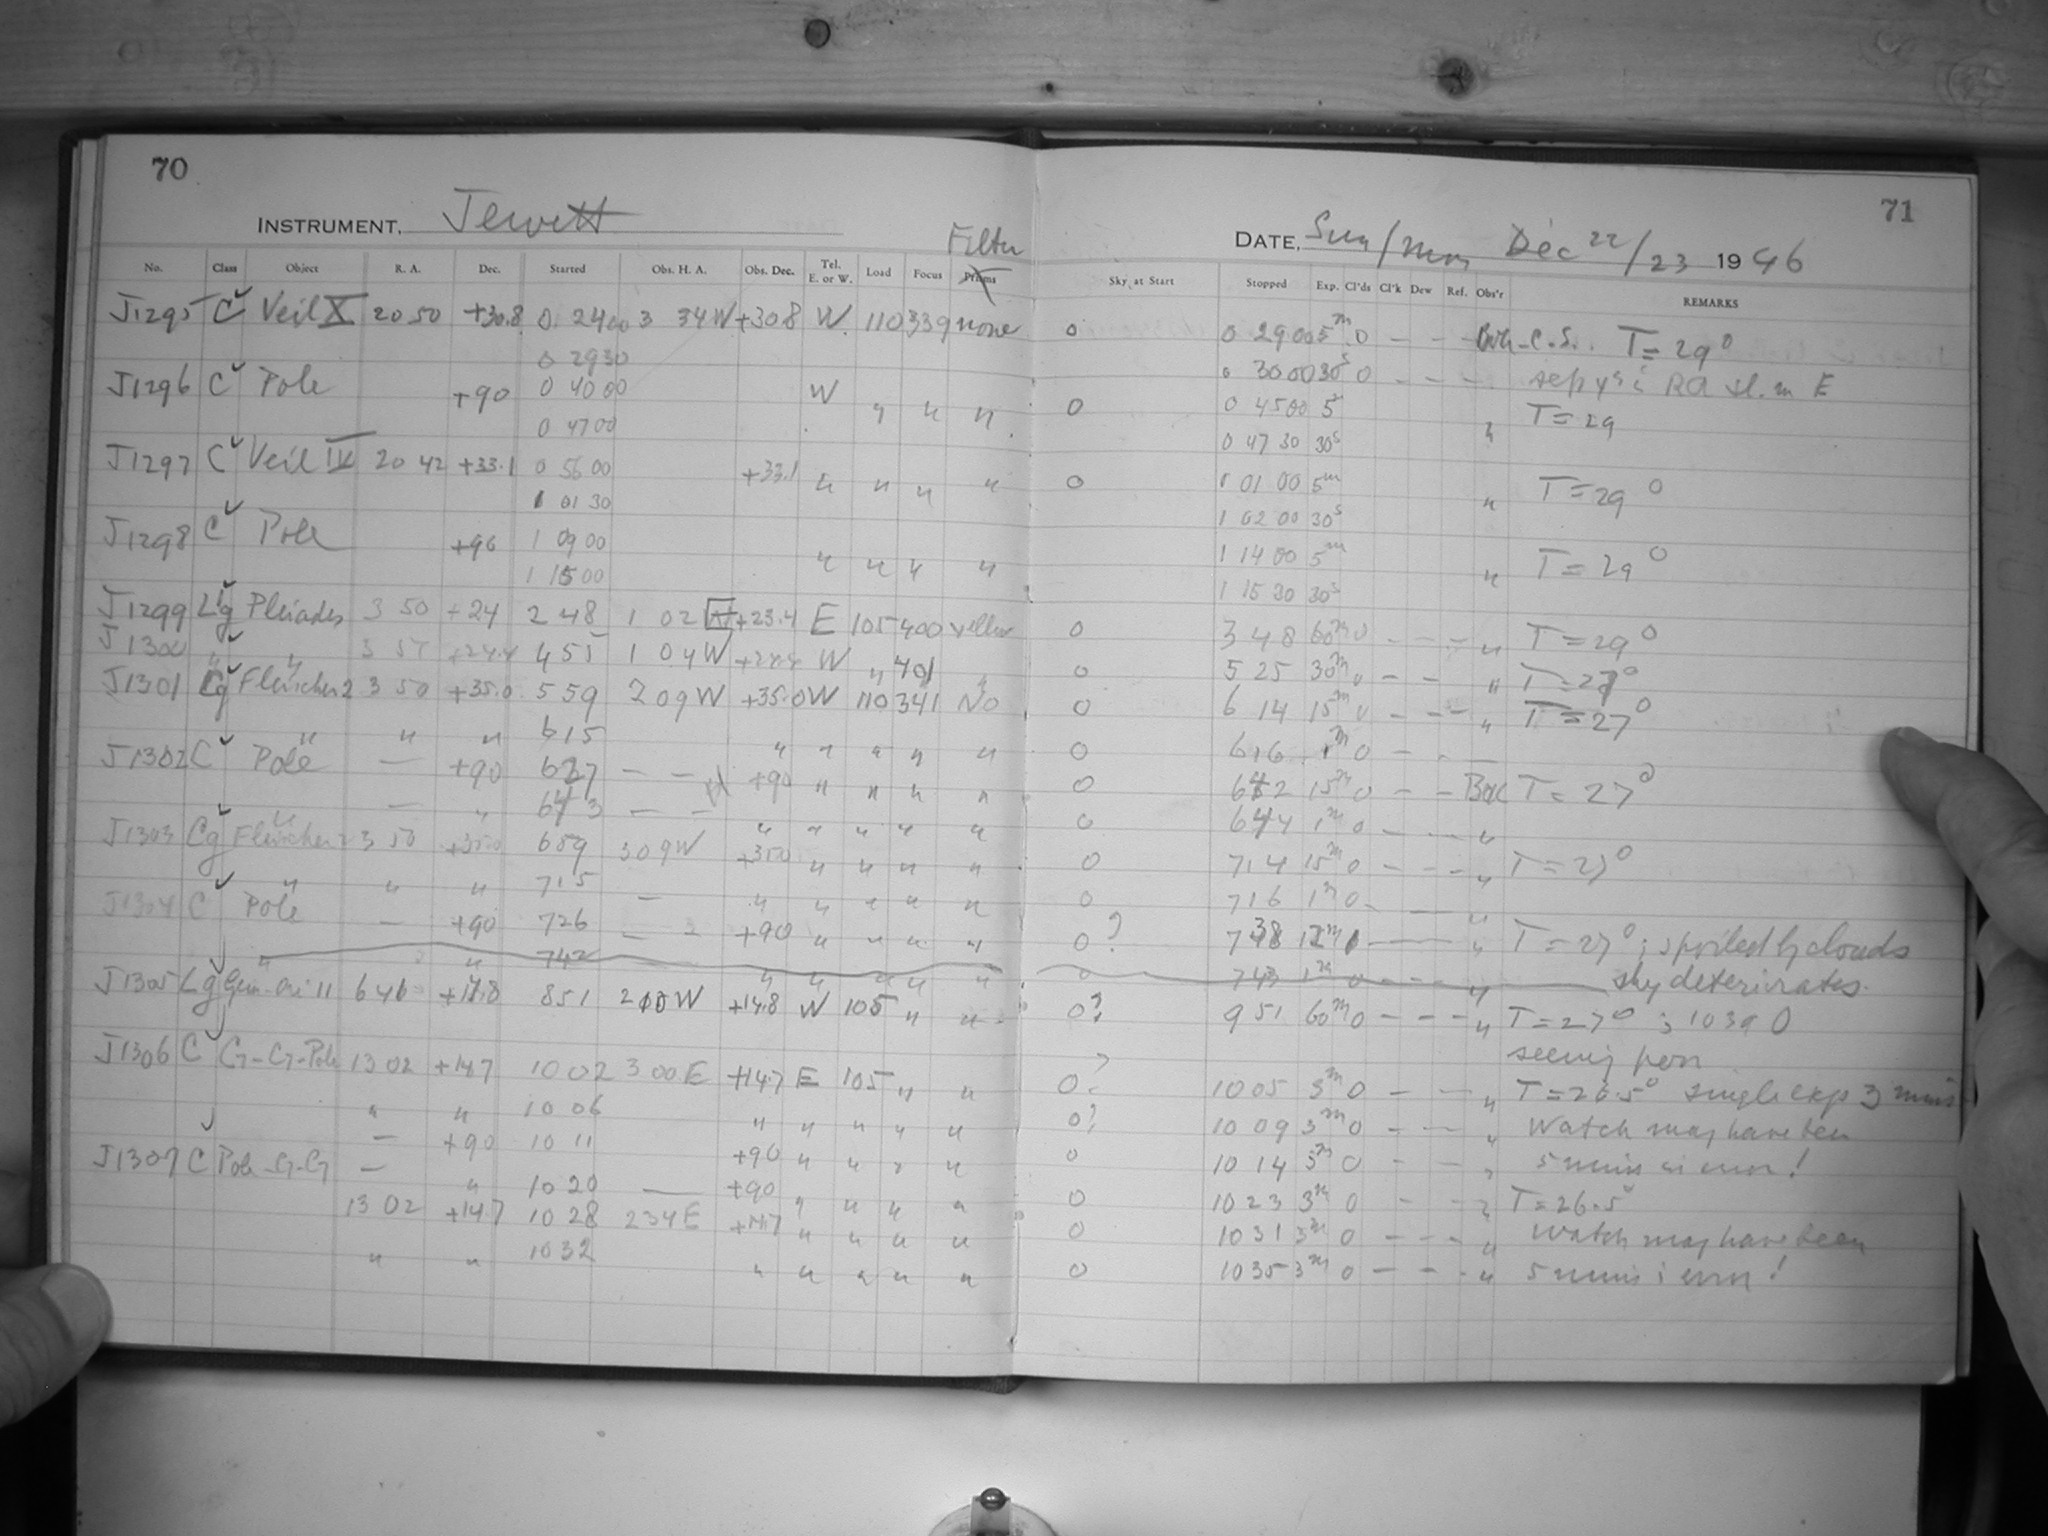 70
INSTRUMENT, Jewett
Filter
No. Class Object R. A. Dec. Started Obs. H. A. Obs. Dec. Tel. E. or W. Load Focus Prisms
J1295 C Veil X 20 50 +30.8 0 24 00 3 34 W +30.8 W. 110 339 none
0 29 30
J1296 C Pole +90 0 40 00 W " " "
0 47 00
J1297 C Veil IV 20 42 +33.1 0 56 00 +33.1 " " " "
1 01 30
J1298 C Pole +90 1 09 00 " " " "
1 15 00
J1299 Lg Pleiades 3 50 +24 2 48 1 02 W +23.4 E 105 400 yellow
J1300 " " +24.4 4 55 1 04 W +24.4 W " 401 "
J1301 Cg Fleischer 2 3 50 +35.0 5 59 2 09 W +35.0 W 110 341 No
" " " 6 15 " " " " "
J1302 C Pole — +90 6 27 — — +90 " " " "
— " 6 43 — - " " " " "
J1303 Cg Fleischer 2 3 50 +35.0 6 59 3 09 W +35.0 " " " "
" " " 7 15 — " " " " "
J1304 C Pole — +90 7 26 — - +90 " " " "
" " 742 " " " " "
J1305 Lg Gem-Ori 11 6 46 851 W +14.8 W 105 " "
J1306 C G-G-Pole 13 02 +14.7 10 02 3 00 E +14.7 E 105 " "
" " 10 06 " " " " "
— +90 10 11 +90 " " " "
J1307 C Pole-G-G — " 10 20 — +90 " " " "
13 02 +14.7 10 28 2 34 E +14.7 " " " "
" " 10 32 " " " " "
71
DATE, Sun/Mon Dec 22/23 1946
Sky at Start Stopped Exp. Cl'ds Cl'k Dew Ref. Obs'r REMARKS
0 0 29 00 5m 0 - - - C.S. T=29°
0 30 00 30s 0 - - - RA E
0 0 45 00 5m " T=29
0 47 30 30s
0 1 01 00 5m " T=29°
1 02 00 30s
1 14 00 5m " T=29°
1 15 30 30s
0 3 48 60m 0 - - - " T=29°
0 5 25 30m 0 - - " T=27°
0 6 14 15m 0 - - - " T=27°
0 6 16 1m 0 - -
0 6 42 15m 0 - - T=27°
0 6 44 1m 0 - - - "
0 7 14 15m 0 - - - " T=27°
0 7 16 1m 0 - — "
0? 7 38 12m — " T=27°; spoiled by clouds
0 743 1m 0 - - - " sky deteriorates.
0? 9 51 60m 0 - - - " T=27°; 1039 0
seeing poor
0? 10 05 3m 0 - - " T=26.5° single exp 3 mins
0? 10 09 3m 0 - - - " Watch may have been
0 10 14 3m 0 - - " 5 mins in error!
0 10 23 3m 0 - - " T=26.5°
0 10 31 3m 0 - - - " Watch may have been
0 10 35 3m 0 - - - " 5 mins i error!